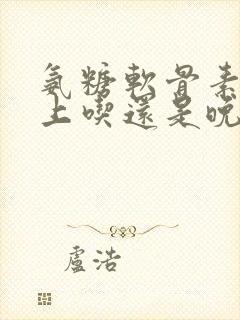 氨糖軟骨素
上喫還是晚
盧浩